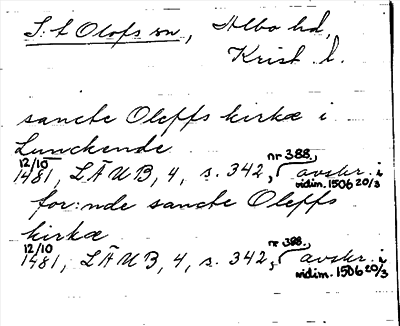 S:t Olofs sn, Albo hd,
Krist. l.
sancte Oleffs kirkæ i
Lunckende
12/10 1481, LÄUB, 4, s. 342, nr 388., avskr. i vidim. 1506 20/3
for:nde sancte Oleffs
kirkæ
12/10 1481, LÄUB, 4, s. 342, nr 388., avskr. i vidim. 1506 20/3